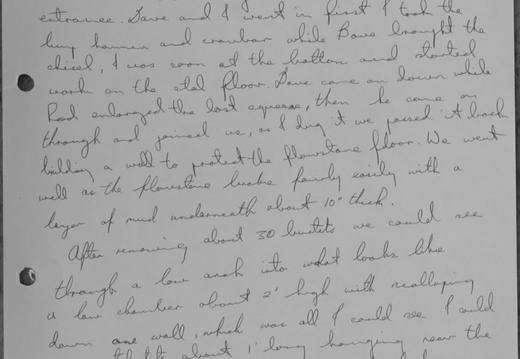 entrance. Dave and I went in first I took the
lump hammer and crowbar while Dave brought the
chisel, I was soon at the bottom and started
work on the stal floor. Dave came on down while
Rod enlarged the last squeeze, then he came on
through and joined us, as I dug it we passed it back
building a wall to protect the flowstone floor. We went
well as the flowstone broke fairly easily with a
layer of mud underneath about 10" thick.
After removing about 30 buckets we could see
through a low arch into what looks like
a low chamber about 2' high with scalloping
down one wall, which was all I could see I could
about 1' long hanging near the